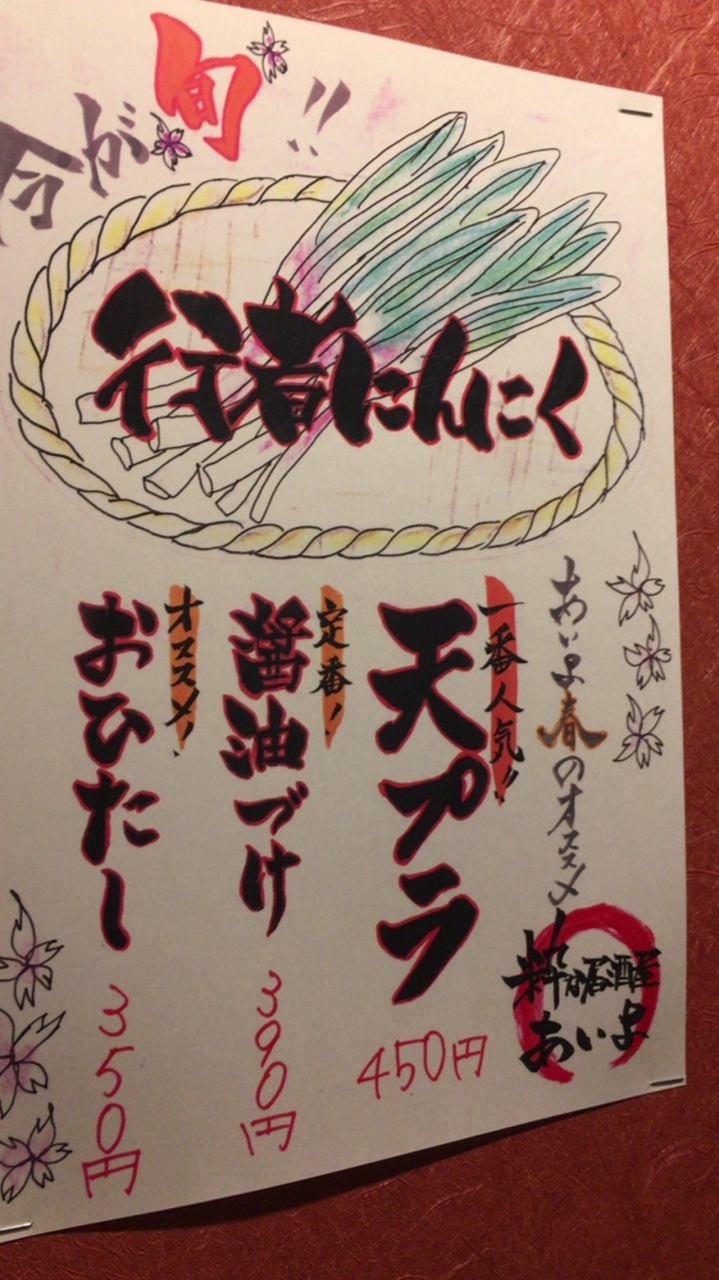 今が旬!!
行者にんにく
あいよ春のオススメ!
一番人気!!
天プラ
450円
定番!
醤油づけ
390円
オススメ!
おひたし
350円
粋な居酒屋
あいよ